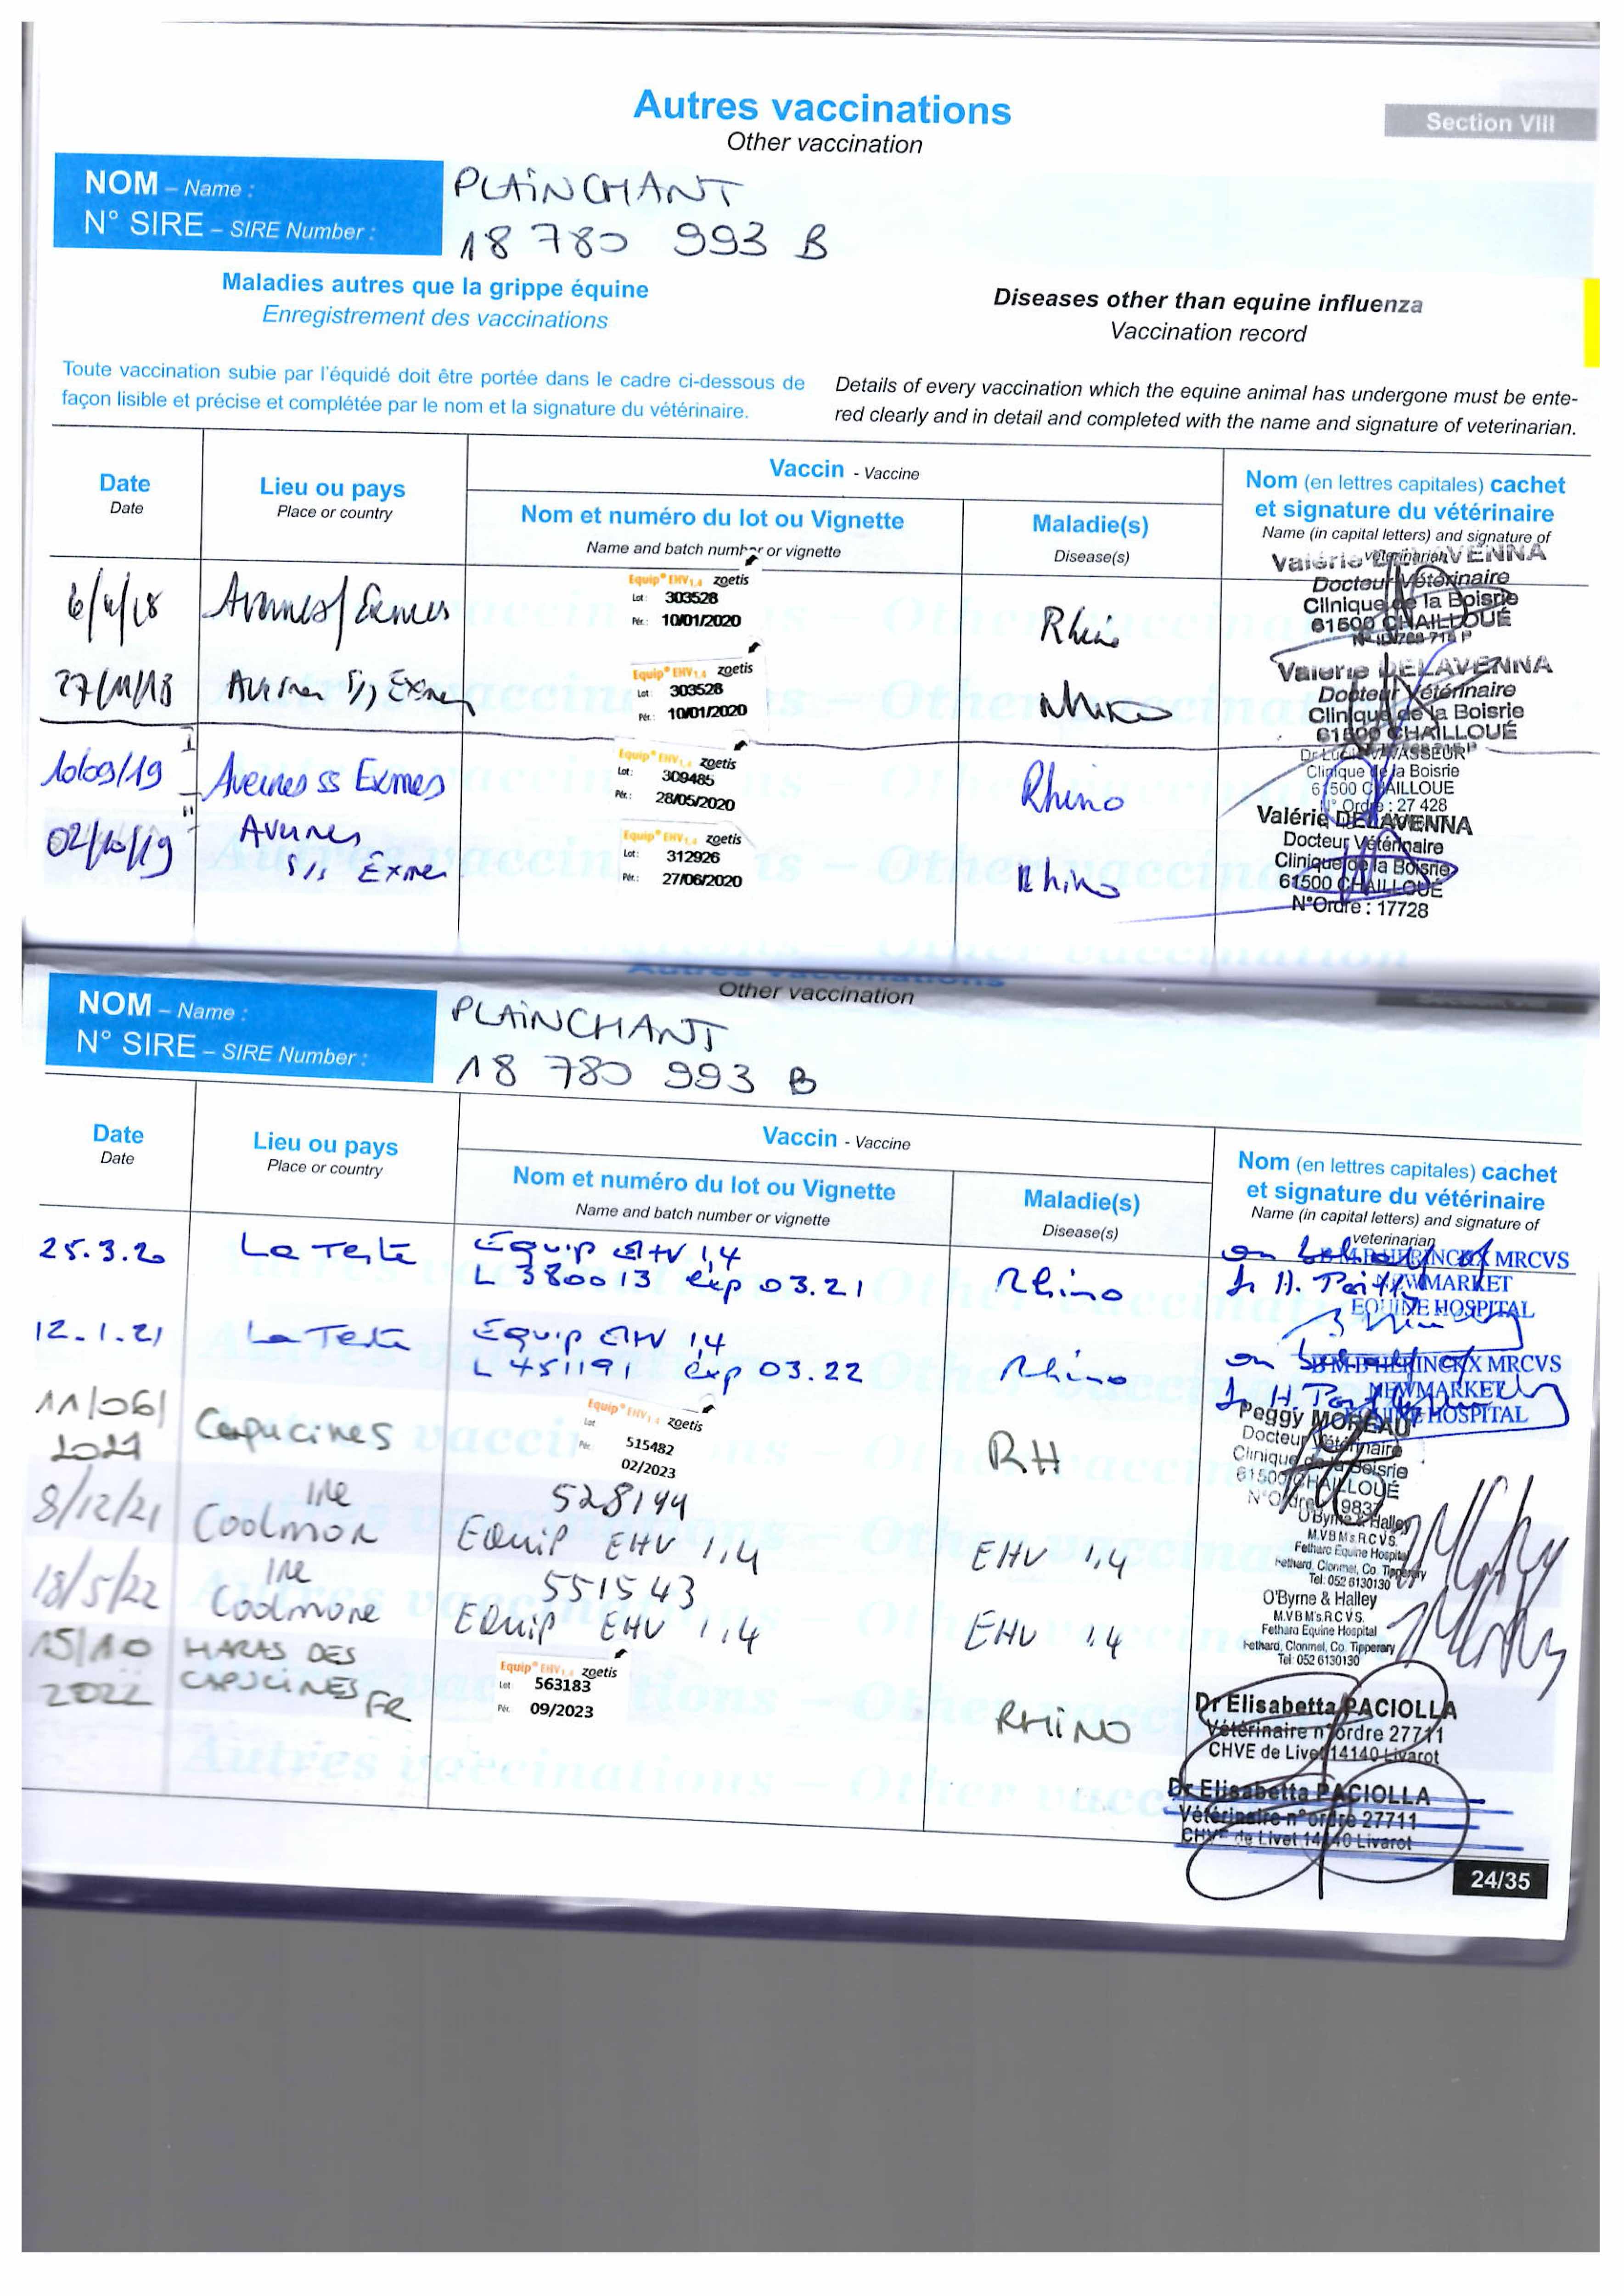 Autres vaccinations
Other vaccination
Section VIII
NOM – Name :
PLAINCHANT
N° SIRE – SIRE Number :
18 780 993 B
Maladies autres que la grippe équine
Enregistrement des vaccinations
Diseases other than equine influenza
Vaccination record
Toute vaccination subie par l'équidé doit être portée dans le cadre ci-dessous de
façon lisible et précise et complétée par le nom et la signature du vétérinaire.
Details of every vaccination which the equine animal has undergone must be ente-
red clearly and in detail and completed with the name and signature of veterinarian.
Date
Date
Lieu ou pays
Place or country
Vaccin - Vaccine
Nom et numéro du lot ou Vignette
Name and batch number or vignette
Maladie(s)
Disease(s)
Nom (en lettres capitales) cachet
et signature du vétérinaire
Name (in capital letters) and signature of
veterinarian
Equip® EHV1,4 zoetis
Lot: 303528
Pér.: 10/01/2020
Rhino
Valérie DELAVENNA
Docteur Vétérinaire
Clinique de la Boisrie
61500 CHAILLOUÉ
27/11/18
Equip® EHV1,4 zoetis
Lot: 303528
Pér.: 10/01/2020
Rhino
Valérie DELAVENNA
Docteur Vétérinaire
Clinique de la Boisrie
61500 CHAILLOUÉ
10/09/19
I
Avernes ss Exmes
Equip® EHV1,4 zoetis
Lot: 309485
Pér.: 28/05/2020
Rhino
Clinique de la Boisrie
61500 CHAILLOUE
N° Ordre : 27 428
02/10/19
II
Avernes
ss Exmes
Equip® EHV1,4 zoetis
Lot: 312926
Pér.: 27/06/2020
Rhino
Valérie DELAVENNA
Docteur Vétérinaire
Clinique de la Boisrie
61500 CHAILLOUÉ
N°Ordre : 17728
Autres vaccinations
Other vaccination
NOM – Name :
PLAINCHANT
N° SIRE – SIRE Number :
18 780 993 B
Date
Date
Lieu ou pays
Place or country
Vaccin - Vaccine
Nom et numéro du lot ou Vignette
Name and batch number or vignette
Maladie(s)
Disease(s)
Nom (en lettres capitales) cachet
et signature du vétérinaire
Name (in capital letters) and signature of
veterinarian
25.3.20
La Teste
Equip EHV 1,4
L 380013 exp 03.21
Rhino
on behalf of
HERINCKX MRCVS
NEWMARKET
EQUINE HOSPITAL
12.1.21
La Teste
Equip EHV 1,4
L 451191 exp 03.22
Rhino
HERINCKX MRCVS
NEWMARKET
EQUINE HOSPITAL
11/06/
2021
Capucines
Equip® EHV1,4 zoetis
Lot 515482
Pér. 02/2023
RH
Peggy MOREAU
Docteur Vétérinaire
Clinique de la Boisrie
61500 CHAILLOUÉ
8/12/21
IRE
Coolmore
528144
Equip EHV 1,4
EHV 1,4
O'Byrne & Halley
M.V.B M's.R.C.V.S.
Fethard Equine Hospital
Fethard, Clonmel, Co. Tipperary
Tel: 052 6130130
18/5/22
IRE
Coolmore
551543
Equip EHV 1,4
EHV 1,4
O'Byrne & Halley
M.V.B M's.R.C.V.S.
Fethard Equine Hospital
Fethard, Clonmel, Co. Tipperary
Tel: 052 6130130
15/10
2022
HARAS DES
CAPUCINES FR
Equip® EHV1,4 zoetis
Lot 563183
Pér. 09/2023
RHINO
Dr Elisabetta PACIOLLA
Vétérinaire n°ordre 27711
CHVE de Livet 14140 Livarot
Dr Elisabetta PACIOLLA
Vétérinaire n°ordre 27711
CHVE de Livet 14140 Livarot
24/35